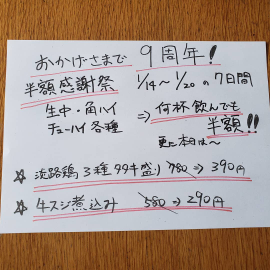 おかげさまで 9周年!
半額感謝祭 1/14〜1/20の7日間
生中・角ハイ
チューハイ各種 ⇒ 何杯飲んでも半額!!
更に本日は〜
☆ 淡路鶏3種タタキ盛り 780 ⇒ 390円
☆ 牛スジ煮込み 580 ⇒ 290円